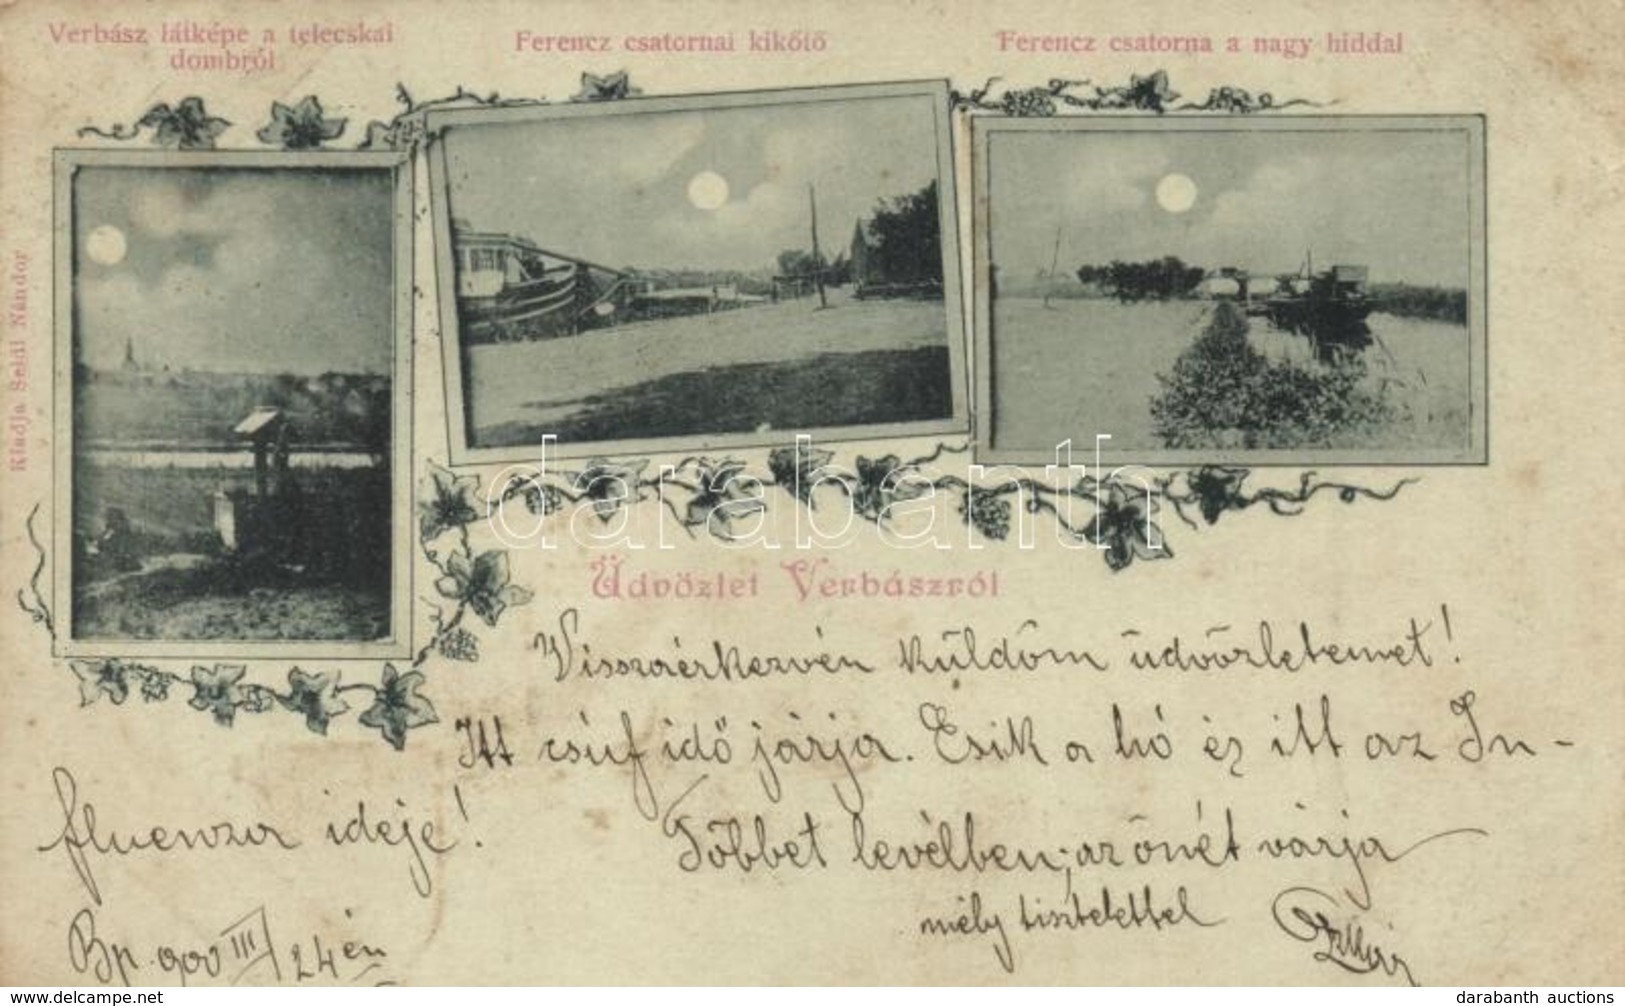 Verbász látképe a telecskai
dombról
Ferencz csatornai kikötö
Ferencz csatorna a nagy híddal
Kiadja Sekál Nándor
darabanth
Üdvözlet Verbászról
Visszaérkezvén küldöm üdvözletemet!
Itt csúf idő járja. Esik a hó és itt az In-
fluenza ideje!
Többet levélben, az önét várja
mély tisztelettel
Bp. 900 III/24 én
www.darabanth.com
darabanth auctions